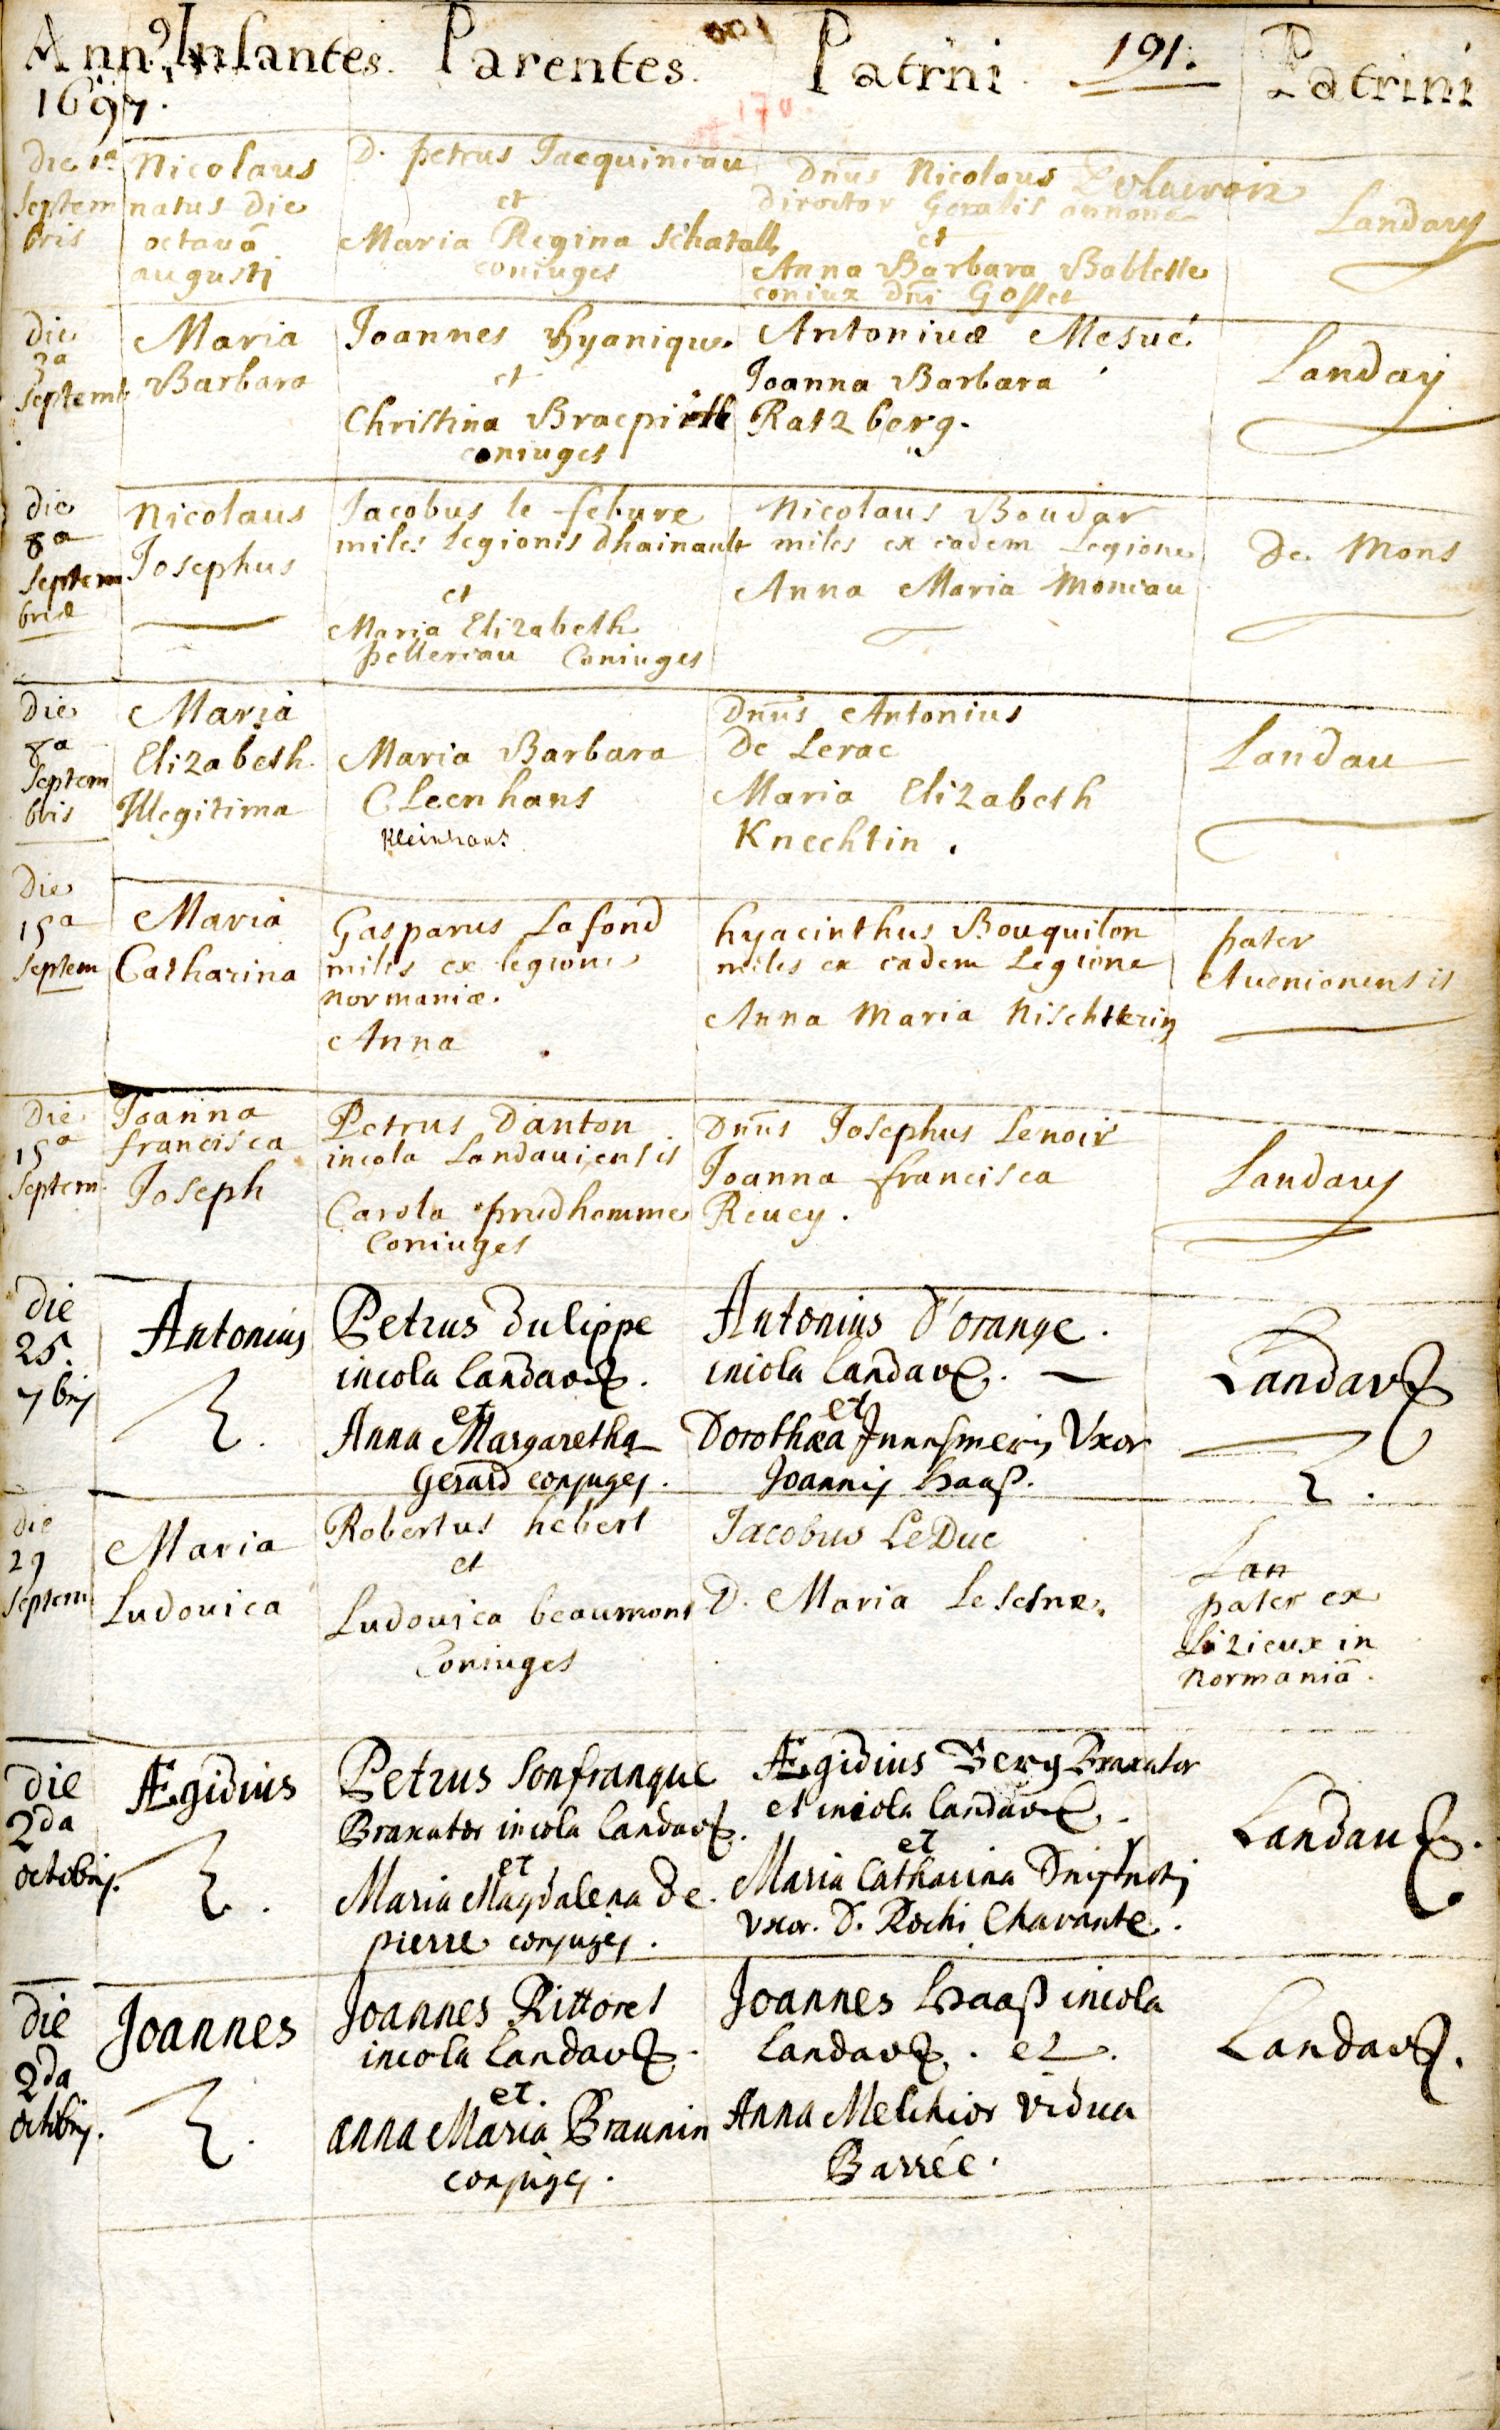 Ann9 Infantes. Parentes. Patrni. 191. Patrini
1697.
Die 1a
Septem
bris
Nicolaus
natus Die
octavâ
augusti
D. petrus Jacquineau
et
Maria Regina Schatall
coniuges
Dnus Nicolaus Delacroix
Director Geralis annonae
et
Anna Barbara Bablette
coniux Dni Gosset
Landavij
Die
3a
Septemb
Maria
Barbara
Joannes hyanique
et
Christina
coniuges
Antonius Mesué
Joanna Barbara
Ratzberg.
Landavij
Die
8a
Septem
bris
Nicolaus
Josephus
Jacobus le febure
miles legionis dhainault
et
Maria Elizabeth
pellereau Coniuges
Nicolaus Boudar
miles ex eadem Legione
Anna Maria Moncau
De Mons
Die
8a
Septem
bris
Maria
Elizabeth
Illegitima
Maria Barbara
Cleenhans
Kleinhans
Dnus Antonius
De Lerac
Maria Elizabeth
Knechtin.
Landau
Die
15a
Septem
Maria
Catharina
Gasparus Lafond
miles ex legione
normaniae.
Anna
hyacinthus Bouquilon
miles ex eadem Legione
Anna Maria
pater
Avenionensis
Die
15a
Septem.
Joanna
francisca
Joseph
Petrus Danton
incola Landaviensis
Carola prudhomme
Coniuges
Dnus Josephus Lenoir
Joanna francisca
Revey.
Landavij
Die
25.
7brij
Antonius
Petrus Dulippe
incola Landavae.
et
Anna Margaretha
Gerard conjuges.
Antonius D'orange.
incola Landavae.
et
Dorothaea Uxor
Joannis Haaß.
Landavae
Die
29
Septem
Maria
Ludovica
Robertus hebert
et
Ludovica beaumont
Coniuges
Jacobus LeDuc
D. Maria
Lan
pater ex
Lizieux in
Normaniâ.
Die
2da
octobris.
Ægidius
Petrus Sonfranque
Braxator incola Landavae.
et
Maria Magdalena De.
pierre conjuges.
Ægidius Berg Braxator
et incola Landavae.
et
Maria Catharina
Uxor. D. Rochi Charante.
Landavae.
Die
2da
octobris.
Joannes
Joannes Rittoret
incola Landavae.
et.
Anna Maria Braunin
conjuges.
Joannes Haaß incola
Landavae. et.
Anna Melchior vidua
Barrée.
Landavae.